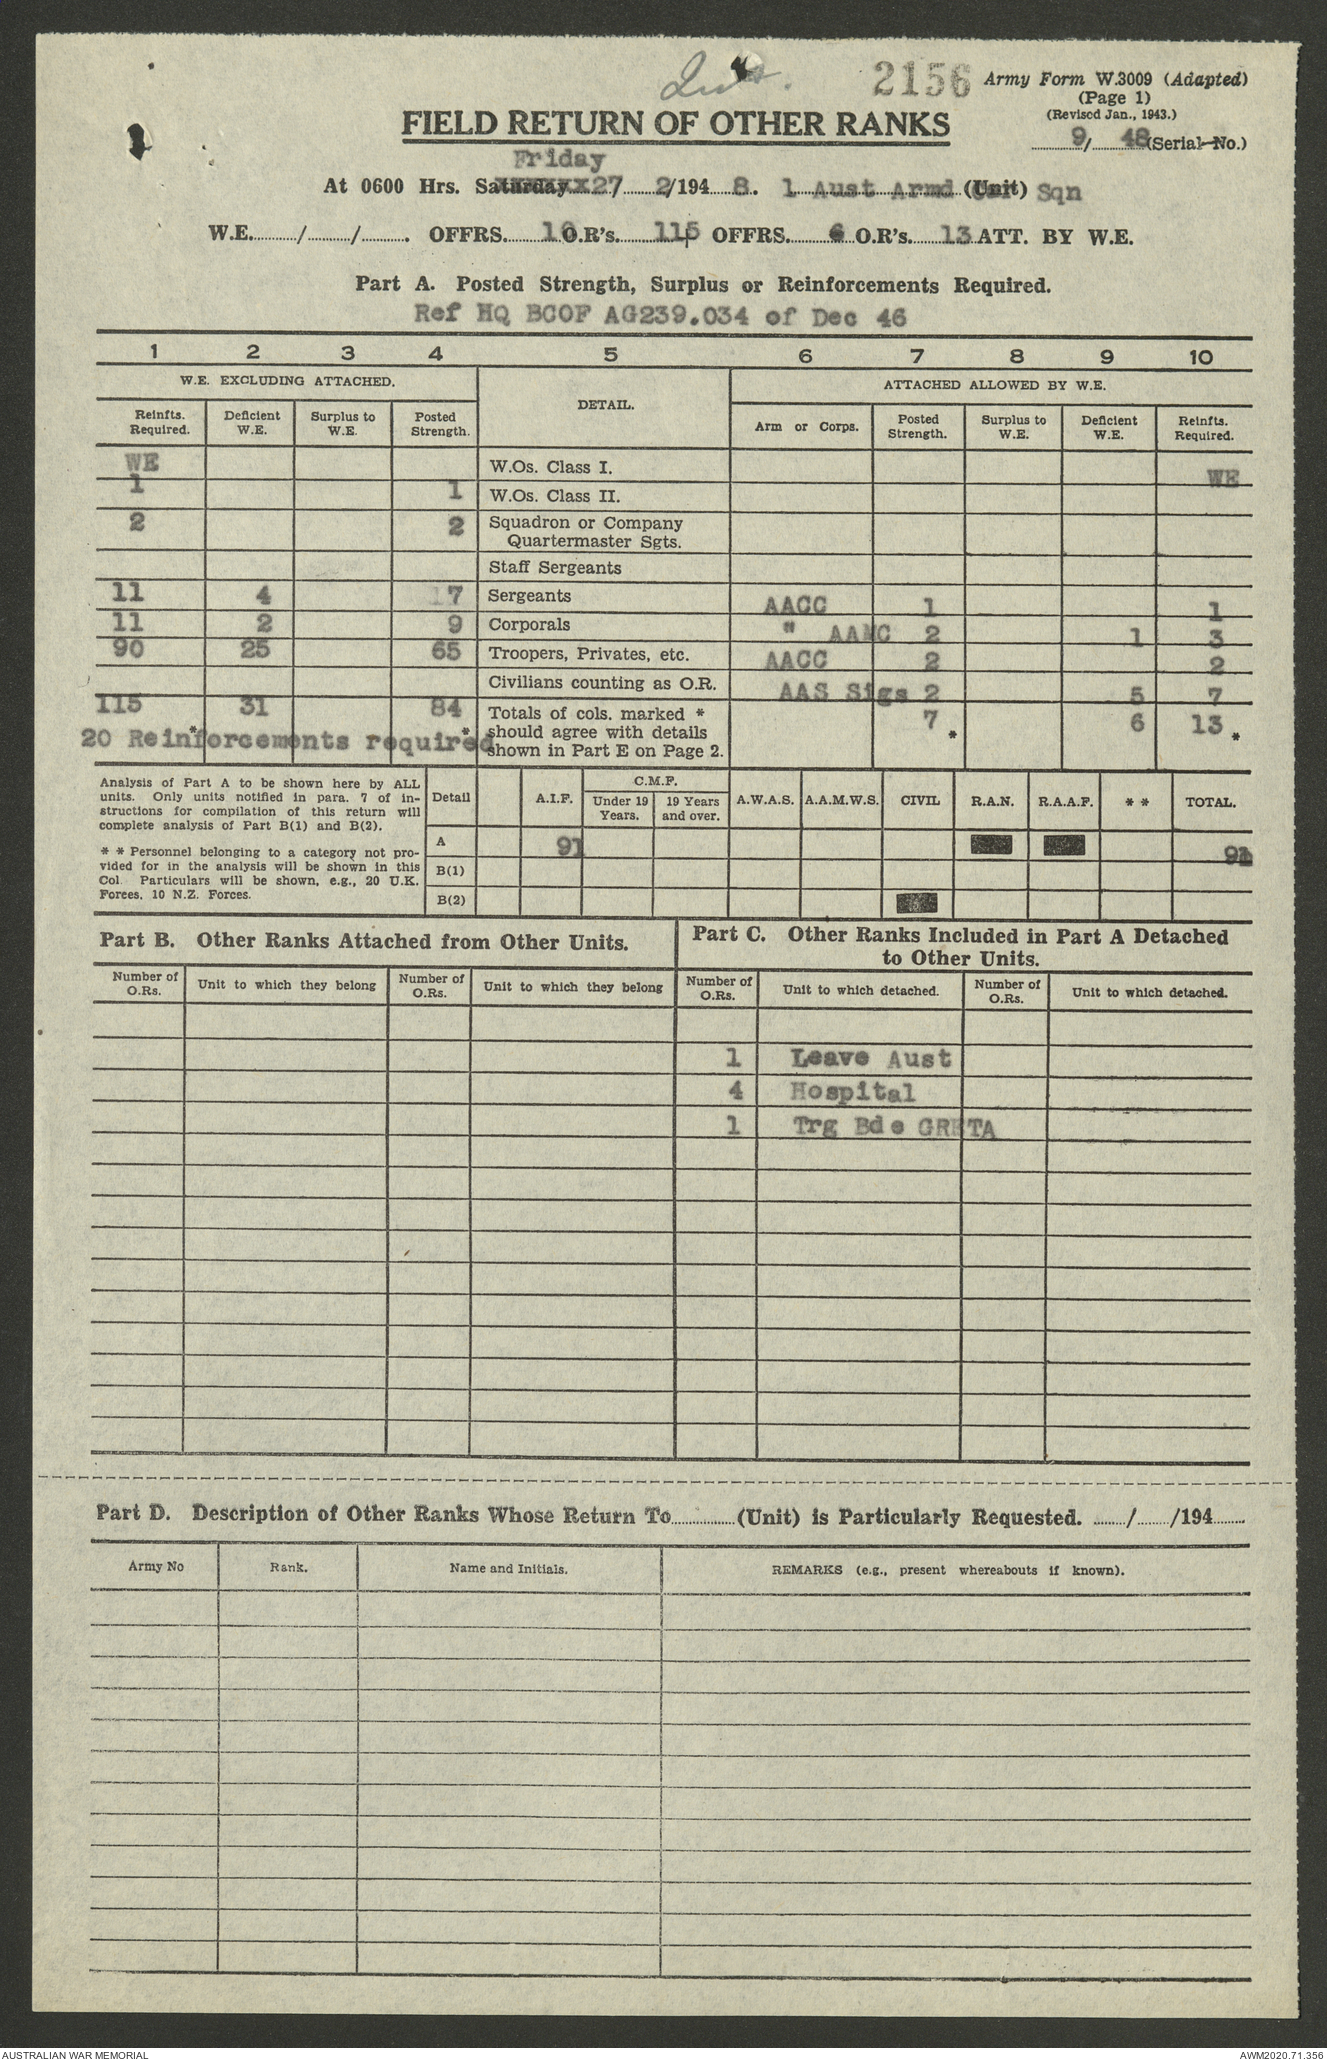 2156
Army Form W.3009 (Adapted)
(Page 1)
(Revised Jan., 1943.)
9/ 48 (Serial No.)
FIELD RETURN OF OTHER RANKS
Friday
At 0600 Hrs. Saturday 27 2/194 8. 1 Aust Armd (Unit) Sqn
W.E. / / . OFFRS. 10 O.R's. 115 OFFRS. 6 O.R's. 13 ATT. BY W.E.
Part A. Posted Strength, Surplus or Reinforcements Required.
Ref HQ BCOF AG239.034 of Dec 46
1 2 3 4 5 6 7 8 9 10
W.E. EXCLUDING ATTACHED. DETAIL. ATTACHED ALLOWED BY W.E.
Reinfts. Required. Deficient W.E. Surplus to W.E. Posted Strength. Arm or Corps. Posted Strength. Surplus to W.E. Deficient W.E. Reinfts. Required.
WE W.Os. Class I. WE
1 1 W.Os. Class II.
2 2 Squadron or Company Quartermaster Sgts.
Staff Sergeants
11 4 7 Sergeants AACC 1 1
11 2 9 Corporals " AAMC 2 1 3
90 25 65 Troopers, Privates, etc. AACC 2 2
Civilians counting as O.R. AAS Sigs 2 5 7
115 31 84 Totals of cols. marked * should agree with details shown in Part E on Page 2. 7 * 6 13 *
20 Reinforcements required * *
Analysis of Part A to be shown here by ALL
units. Only units notified in para. 7 of in-
structions for compilation of this return will
complete analysis of Part B(1) and B(2).
* * Personnel belonging to a category not pro-
vided for in the analysis will be shown in this
Col. Particulars will be shown, e.g., 20 U.K.
Forces, 10 N.Z. Forces.
Detail A.I.F. C.M.F. Under 19 Years. 19 Years and over. A.W.A.S. A.A.M.W.S. CIVIL R.A.N. R.A.A.F. * * TOTAL.
A 91 91
B(1)
B(2)
Part B. Other Ranks Attached from Other Units.
Part C. Other Ranks Included in Part A Detached
to Other Units.
Number of O.Rs. Unit to which they belong Number of O.Rs. Unit to which they belong Number of O.Rs. Unit to which detached. Number of O.Rs. Unit to which detached.
1 Leave Aust
4 Hospital
1 Trg Bde GRETA
Part D. Description of Other Ranks Whose Return To (Unit) is Particularly Requested. / /194
Army No Rank. Name and Initials. REMARKS (e.g., present whereabouts if known).
AUSTRALIAN WAR MEMORIAL AWM2020.71.356